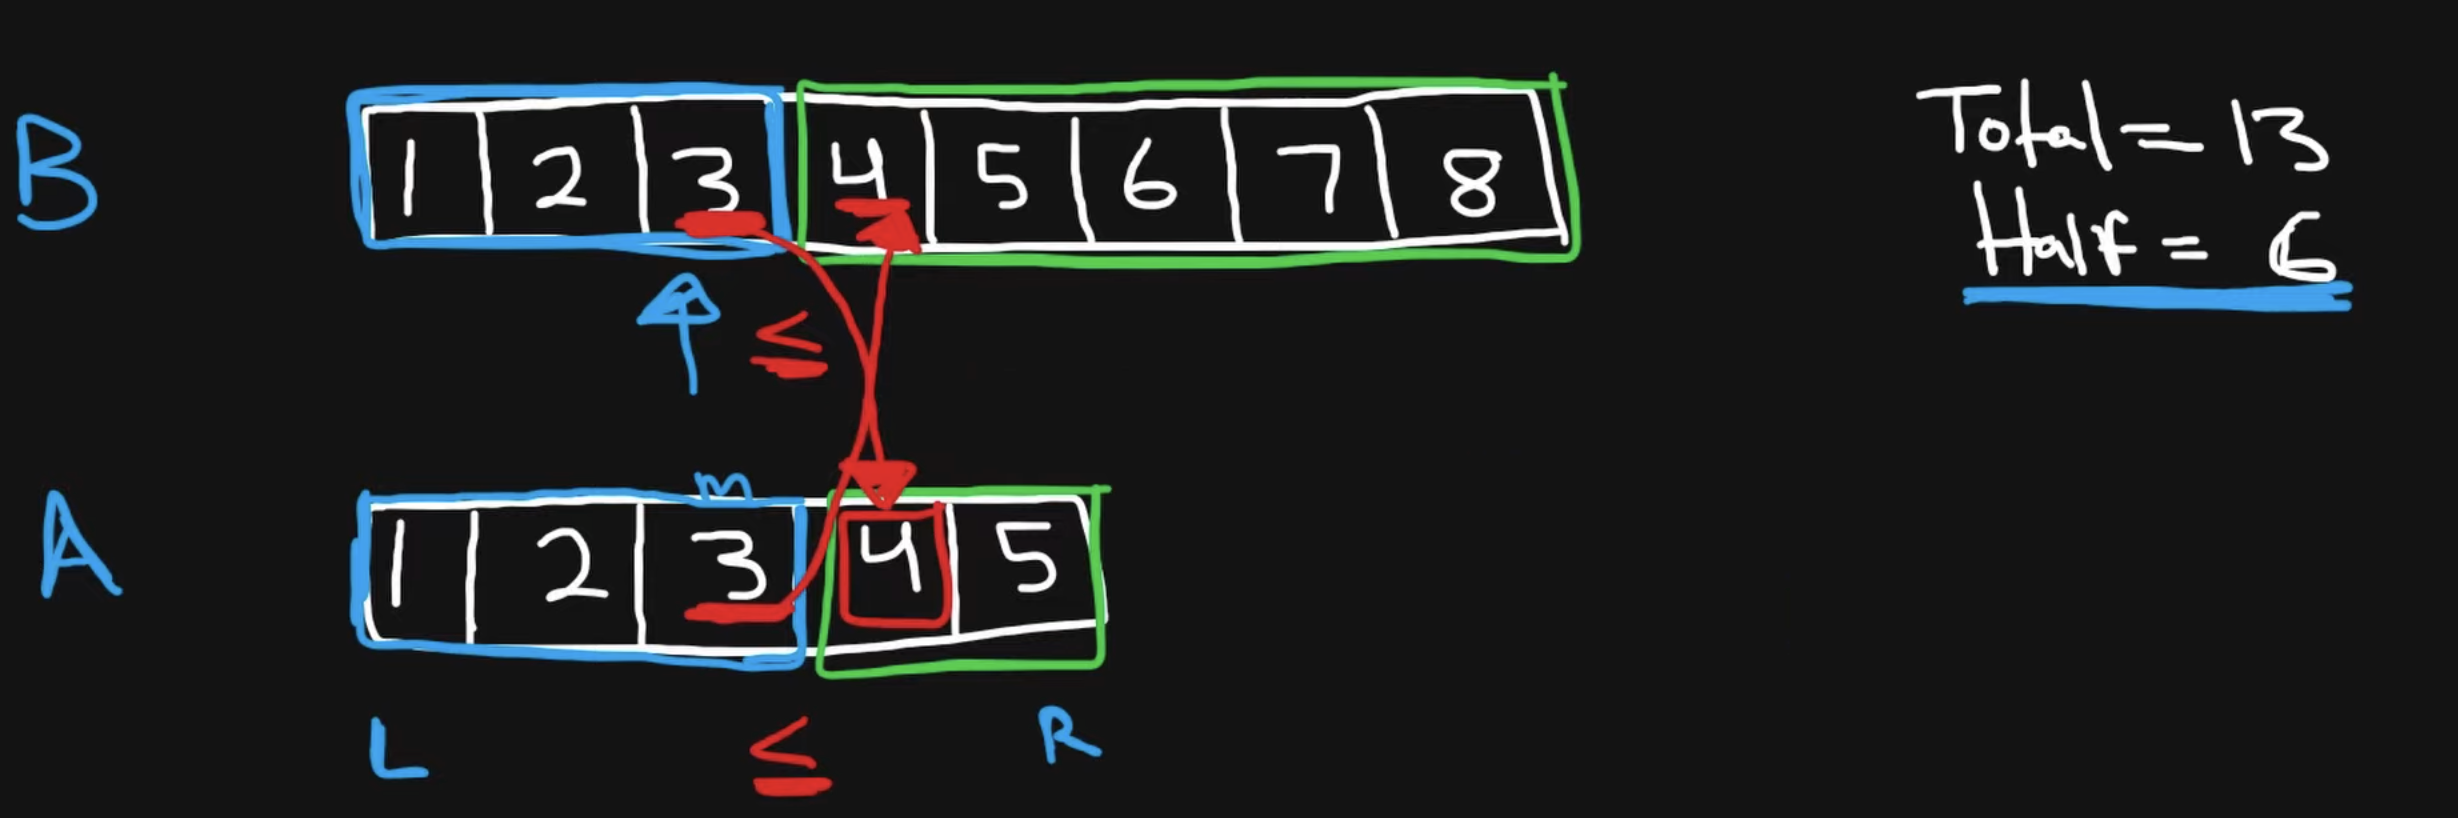 B 1 2 3 4 5 6 7 8
Total = 13
Half = 6
≤
m
A 1 2 3 4 5
L ≤ R